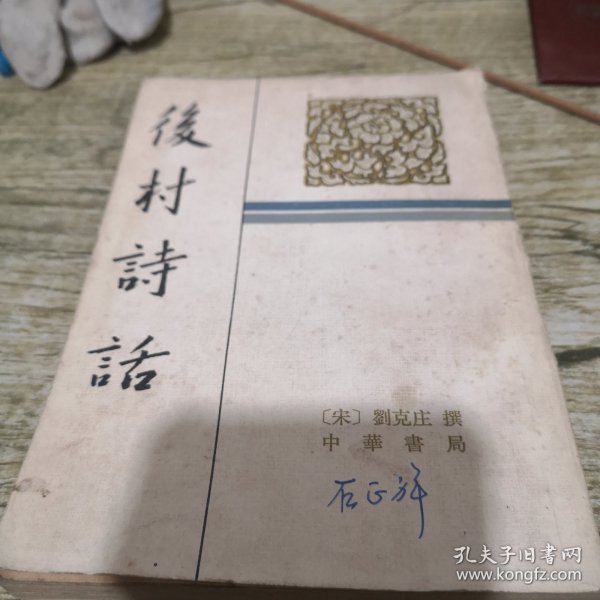 後村詩話
〔宋〕劉克庄 撰
中華書局
石正祥
孔夫子旧书网
www.kongfz.com